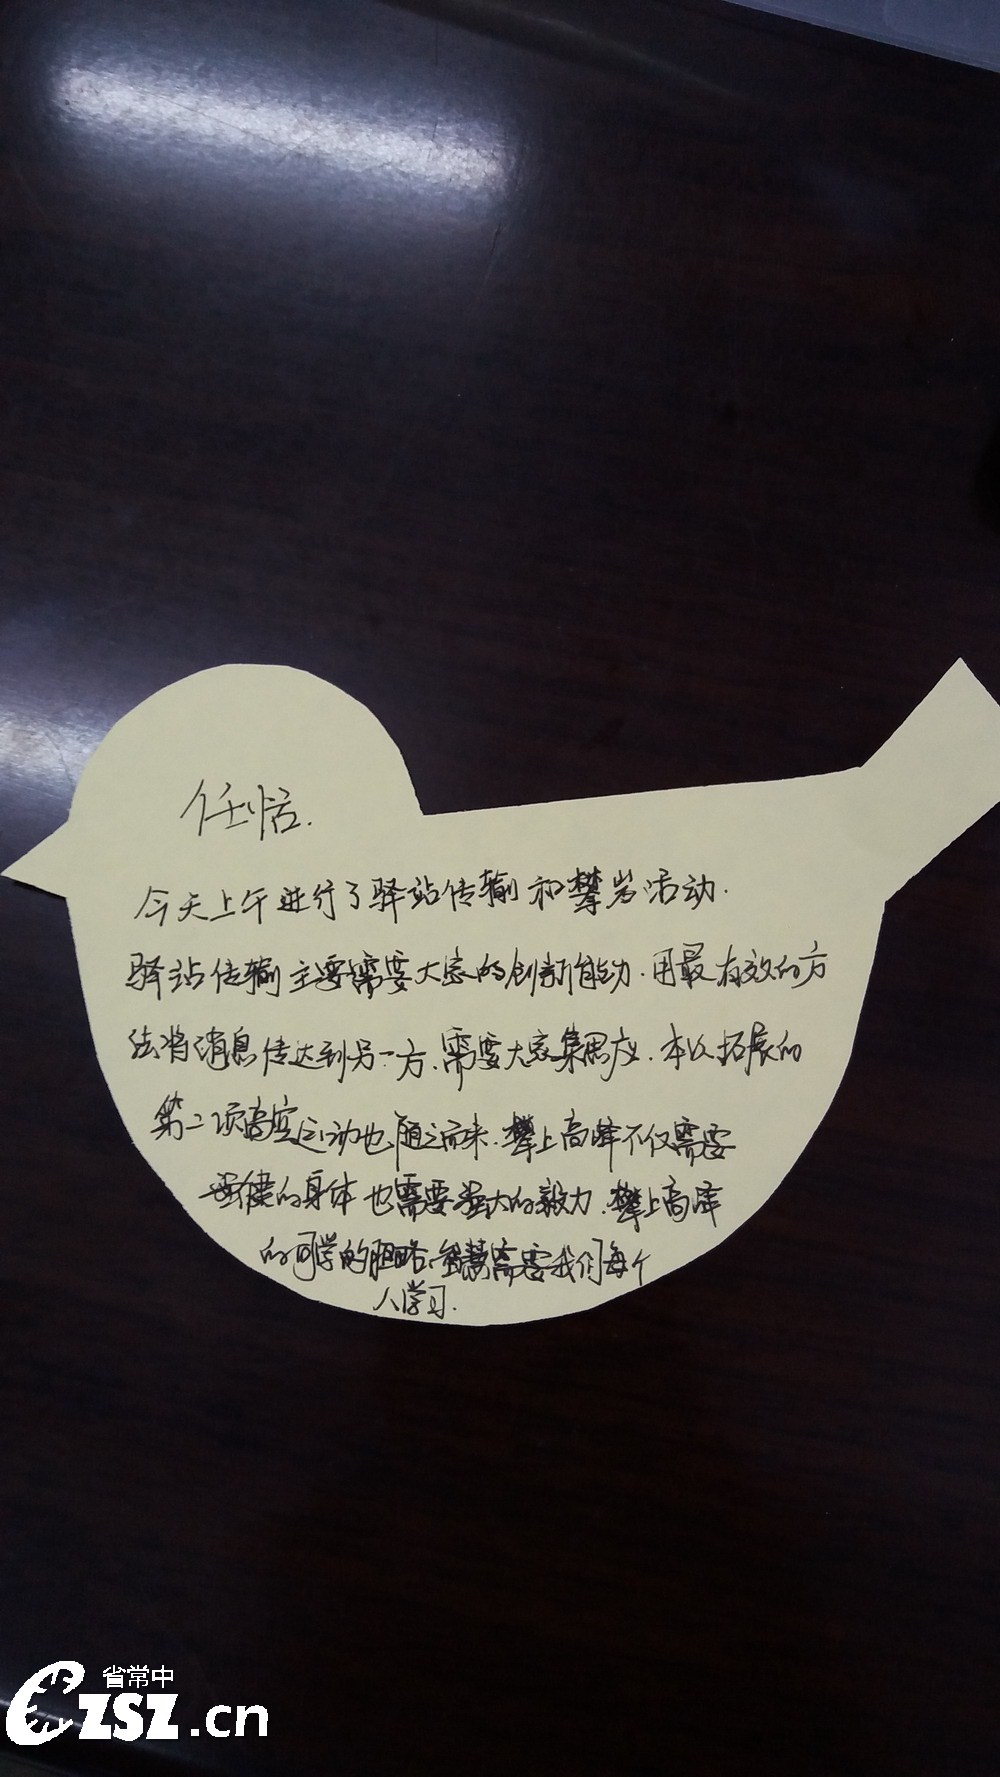 任恬.
今天上午进行了驿站传输和攀岩活动.
驿站传输主要需要大家的创新能力.用最有效的方
法将消息传达到另一方、需要大家集思广.本次拓展的
第二项高空运动也随之而来.攀上高峰不仅需要
强健的身体也需要强大的毅力.攀上高峰
的同学的胆略、智慧需要我们每个
人学习.
省常中
CZSZ.cn